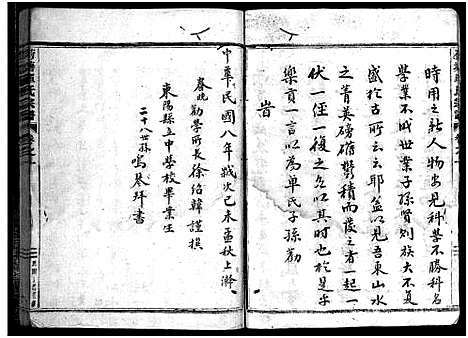 時用之新人物安見科學不勝科名
譽業不成世業子孫賢則族大不更
盛於古所云云耶益以見吾東山水
之菁英磅礴鬱積而後之者一起一
伏一徑一後之名以其時於是乎
樂貢一言以為單氏子孫勸
旹
中華民國八年歲次己未孟秋上澣
春晚勸學所長徐紹韓謹撰
東陽縣立中學校畢業生
二十八世孫鳴琴拜書